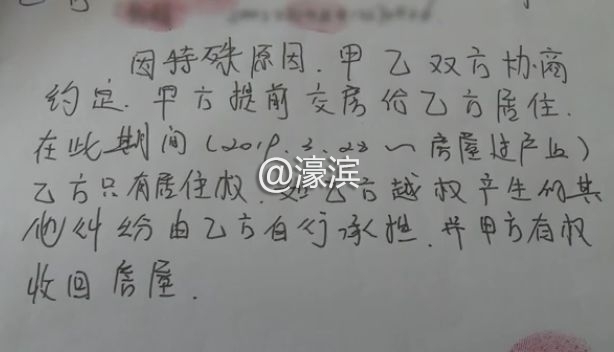 因特殊原因.甲乙双方协商
约定.甲方提前交房给乙方居住.
在此期间(2019.3.23~房屋过产止)
乙方只有居住权.乙方越权产生的其
他纠纷由乙方自行承担.并甲方有权
收回房屋.
@濠滨